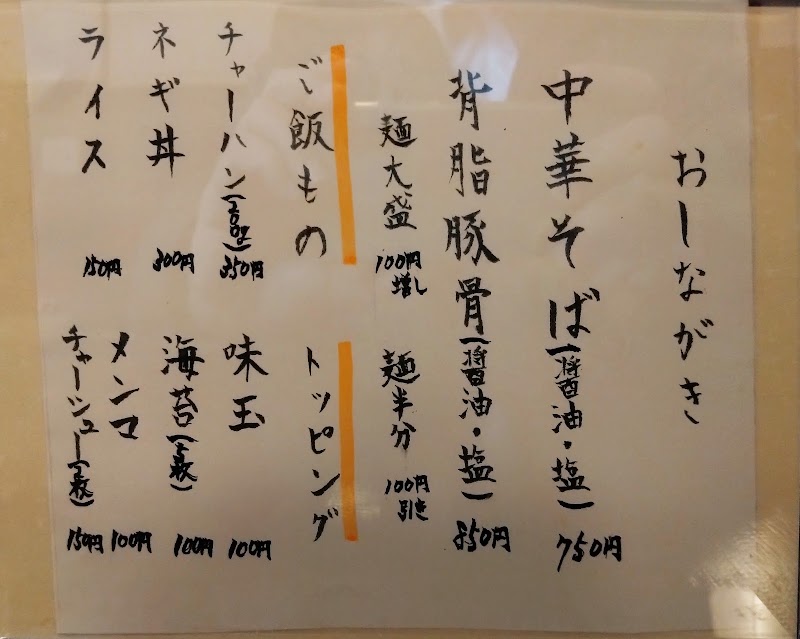 おしながき
中華そば(醤油・塩) 750円
背脂豚骨(醤油・塩) 850円
麺大盛 100円増し
麺半分 100円引き
ご飯もの
チャーハン(200g) 350円
ネギ丼 300円
ライス 150円
トッピング
味玉 100円
海苔(枚) 100円
メンマ 100円
チャーシュー(枚) 150円